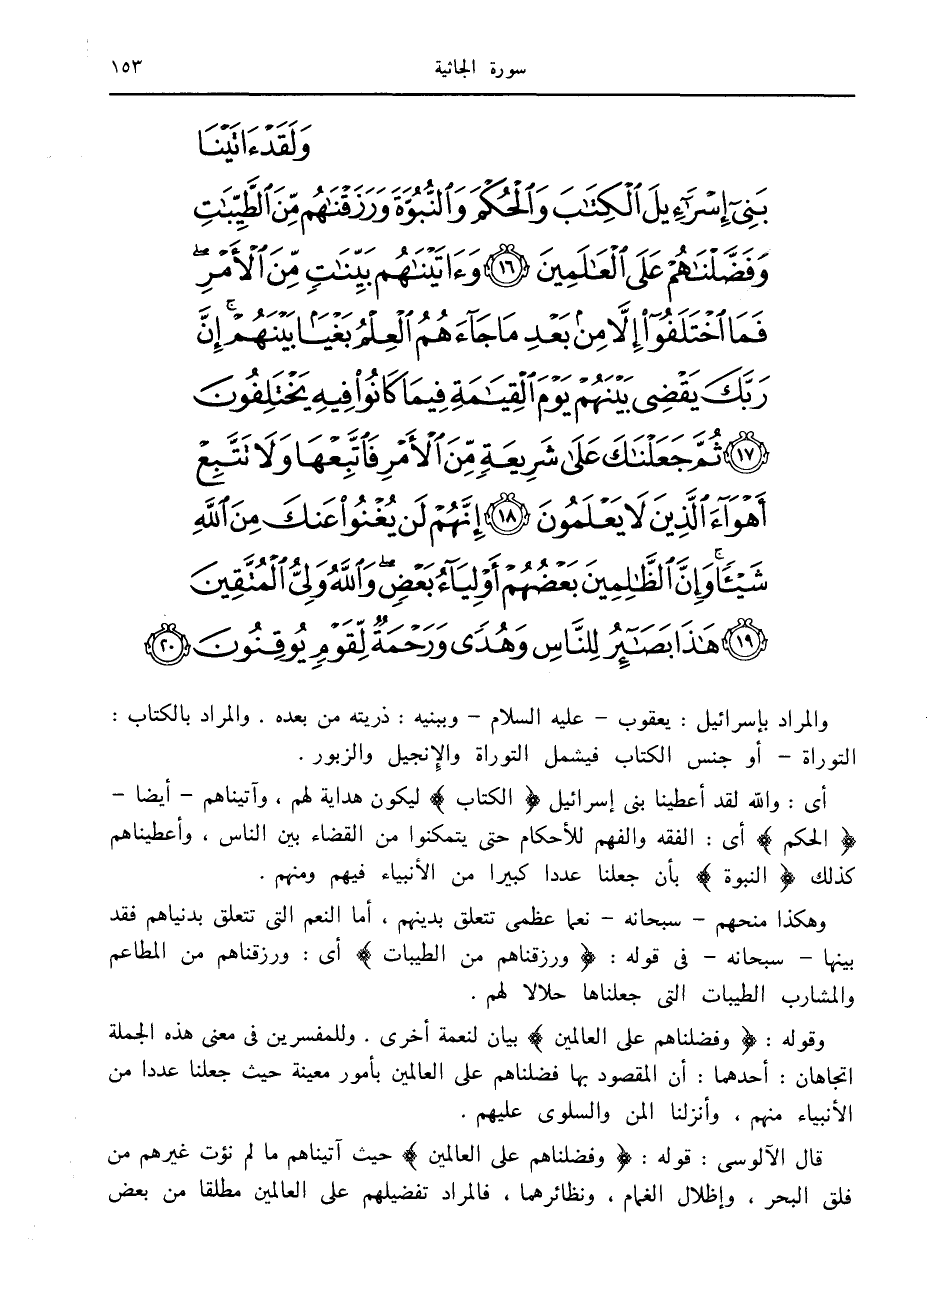 سورة الجاثية ١٥٣
وَلَقَدْ ءَاتَيْنَا
بَنِىٓ إِسْرَٰٓءِيلَ ٱلْكِتَٰبَ وَٱلْحُكْمَ وَٱلنُّبُوَّةَ وَرَزَقْنَٰهُم مِّنَ ٱلطَّيِّبَٰتِ
وَفَضَّلْنَٰهُمْ عَلَى ٱلْعَٰلَمِينَ ﴿١٦﴾ وَءَاتَيْنَٰهُم بَيِّنَٰتٍ مِّنَ ٱلْأَمْرِ ۖ
فَمَا ٱخْتَلَفُوٓا۟ إِلَّا مِنۢ بَعْدِ مَا جَآءَهُمُ ٱلْعِلْمُ بَغْيًۢا بَيْنَهُمْ ۚ إِنَّ
رَبَّكَ يَقْضِى بَيْنَهُمْ يَوْمَ ٱلْقِيَٰمَةِ فِيمَا كَانُوا۟ فِيهِ يَخْتَلِفُونَ
﴿١٧﴾ ثُمَّ جَعَلْنَٰكَ عَلَىٰ شَرِيعَةٍ مِّنَ ٱلْأَمْرِ فَٱتَّبِعْهَا وَلَا تَتَّبِعْ
أَهْوَآءَ ٱلَّذِينَ لَا يَعْلَمُونَ ﴿١٨﴾ إِنَّهُمْ لَن يُغْنُوا۟ عَنكَ مِنَ ٱللَّهِ
شَيْـًٔا ۚ وَإِنَّ ٱلظَّٰلِمِينَ بَعْضُهُمْ أَوْلِيَآءُ بَعْضٍ ۖ وَٱللَّهُ وَلِىُّ ٱلْمُتَّقِينَ
﴿١٩﴾ هَٰذَا بَصَٰٓئِرُ لِلنَّاسِ وَهُدًى وَرَحْمَةٌ لِّقَوْمٍ يُوقِنُونَ ﴿٢٠﴾
والمراد بإسرائيل : يعقوب – عليه السلام – وببنيه : ذريته من بعده . والمراد بالكتاب :
التوراة – أو جنس الكتاب فيشمل التوراة والإنجيل والزبور .
أى : والله لقد أعطينا بنى إسرائيل ﴿ الكتاب ﴾ ليكون هداية لهم ، وآتيناهم – أيضا –
﴿ الحكم ﴾ أى : الفقه والفهم للأحكام حتى يتمكنوا من القضاء بين الناس ، وأعطيناهم
كذلك ﴿ النبوة ﴾ بأن جعلنا عددا كبيرا من الأنبياء فيهم ومنهم .
وهكذا منحهم – سبحانه – نعما عظمى تتعلق بدينهم ، أما النعم التى تتعلق بدنياهم فقد
بينها – سبحانه – فى قوله : ﴿ ورزقناهم من الطيبات ﴾ أى : ورزقناهم من المطاعم
والمشارب الطيبات التى جعلناها حلالا لهم .
وقوله : ﴿ وفضلناهم على العالمين ﴾ بيان لنعمة أخرى . وللمفسرين فى معنى هذه الجملة
اتجاهان : أحدهما : أن المقصود بها فضلناهم على العالمين بأمور معينة حيث جعلنا عددا من
الأنبياء منهم ، وأنزلنا المن والسلوى عليهم .
قال الآلوسى : قوله : ﴿ وفضلناهم على العالمين ﴾ حيث آتيناهم ما لم نؤت غيرهم من
فلق البحر ، وإظلال الغمام ، ونظائرهما ، فالمراد تفضيلهم على العالمين مطلقا من بعض